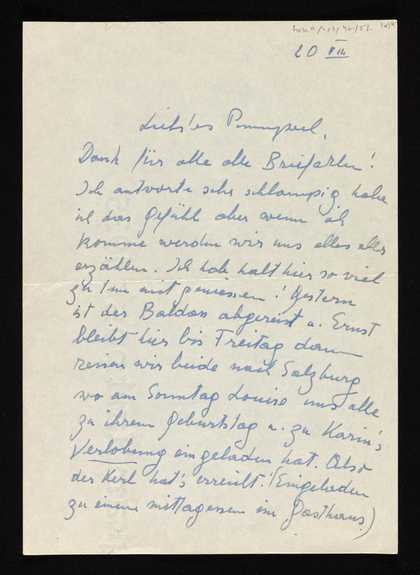 20 VIII
Lieb'es
Dank für alle alle Brieferln!
Ich antworte sehr schlampig habe
ich das Gefühl aber wenn ich
komme werden wir uns alles alles
erzählen. Ich hab halt hier so viel
zu tun mit geniessen! Gestern
ist der Baldass abgereist u. Ernst
bleibt hier bis Freitag dann
reisen wir beide nach Salzburg
wo am Sonntag Louise uns alle
zu ihrem Geburtstag u. zu Karin's
Verlobung eingeladen hat. Also
der Kerl hat's erreicht! (Eingeladen
zu einem Mittagessen im Gasthaus)